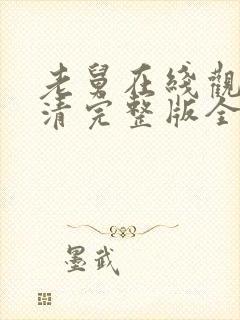 老舅在线觀
清完整版全
墨武